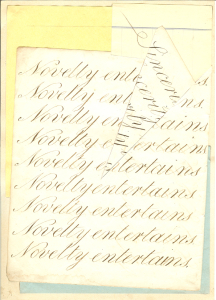 Novelty entertains
Novelty entertains.
Novelty entertains
Novelty entertains
Novelty entertains
Novelty entertains
Novelty entertains
Novelty entertains
Novelty entertains.